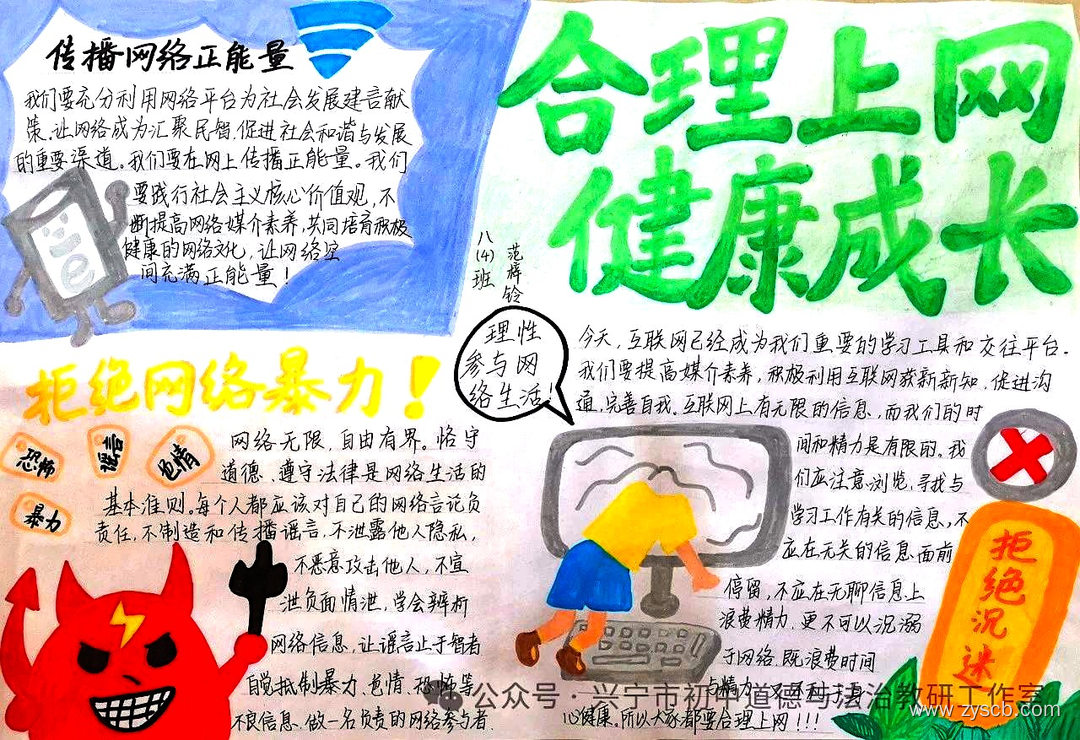 传播网络正能量
我们要充分利用网络平台为社会发展建言献
策.让网络成为汇聚民智.促进社会和谐与发展
的重要渠道。我们要在网上传播正能量。我们
要践行社会主义核心价值观,不
断提高网络媒介素养,共同培育积极
健康的网络文化,让网络空
间充满正能量!
合理上网
健康成长
八(4)班
范辉铃
理性
参与网
络生活!
拒绝网络暴力!
恐怖
谣言
色情
暴力
网络无限,自由有界。恪守
道德、遵守法律是网络生活的
基本准则。每个人都应该对自己的网络言论负
责任,不制造和传播谣言,不泄露他人隐私,
不恶意攻击他人,不宣
泄负面情泄,学会辨析
网络信息,让谣言止于智者
自觉抵制暴力、色情、恐怖等
不良信息.做一名负责的网络参与者.
今天,互联网已经成为我们重要的学习工具和交往平台.
我们要提高媒介素养,积极利用互联网获新新知.促进沟
通,完善自我.互联网上有无限的信息,而我们的时
间和精力是有限的。我
们应注意浏览,寻找与
学习工作有关的信息,不
应在无关的信息面前
停留,不应在无聊信息上
浪费精力.更不可以沉溺
于网络.既浪费时间
与精力,又不利于身
心健康,所以大家都要合理上网!!!
拒绝沉迷
公众号·兴宁市初中道德与法治教研工作室
www.zyscb.com